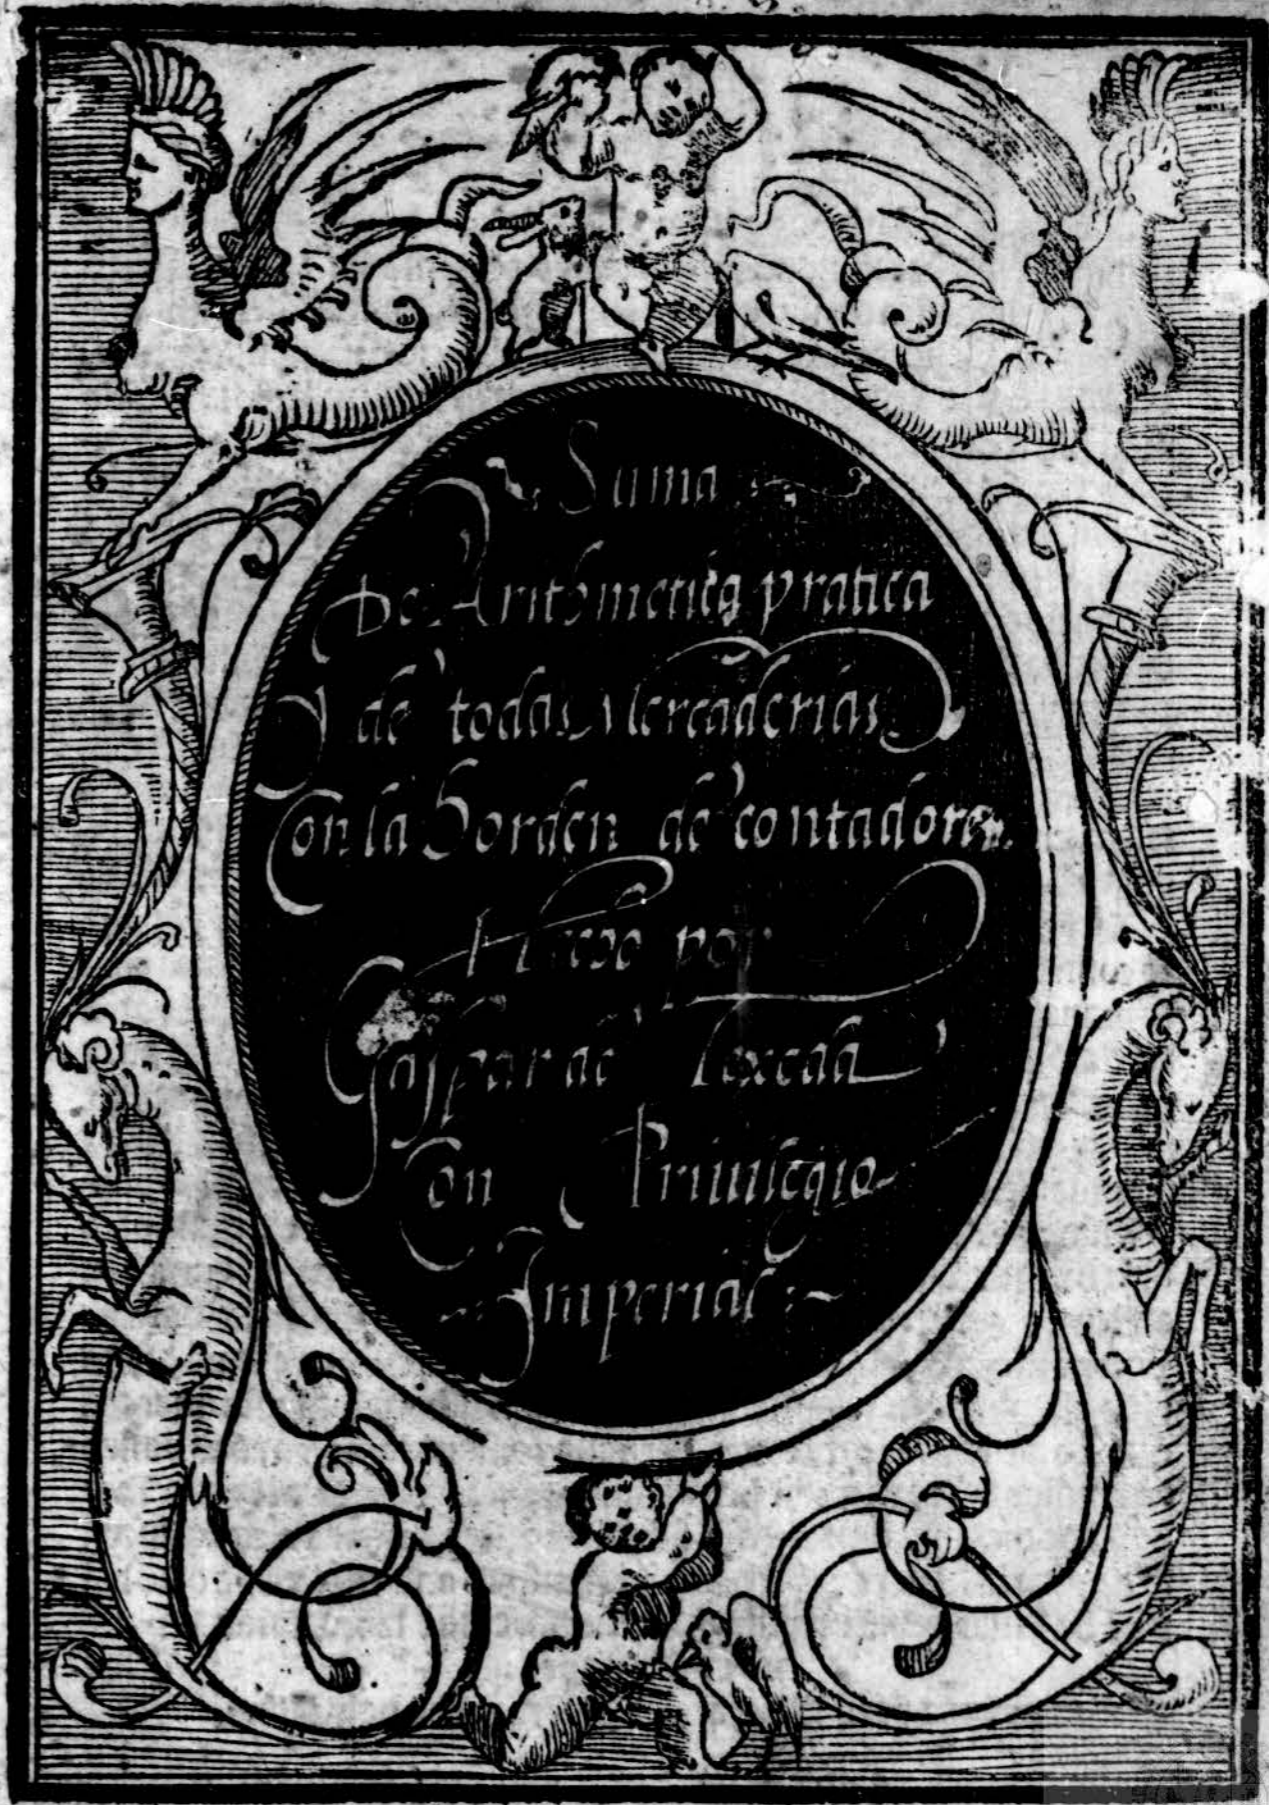 Suma
De Arithmetica pratica
Y de todas Mercaderias
Con la horden de contadores
Hecho por
Gaspar de Texeda
Con Priuilegio
Imperial